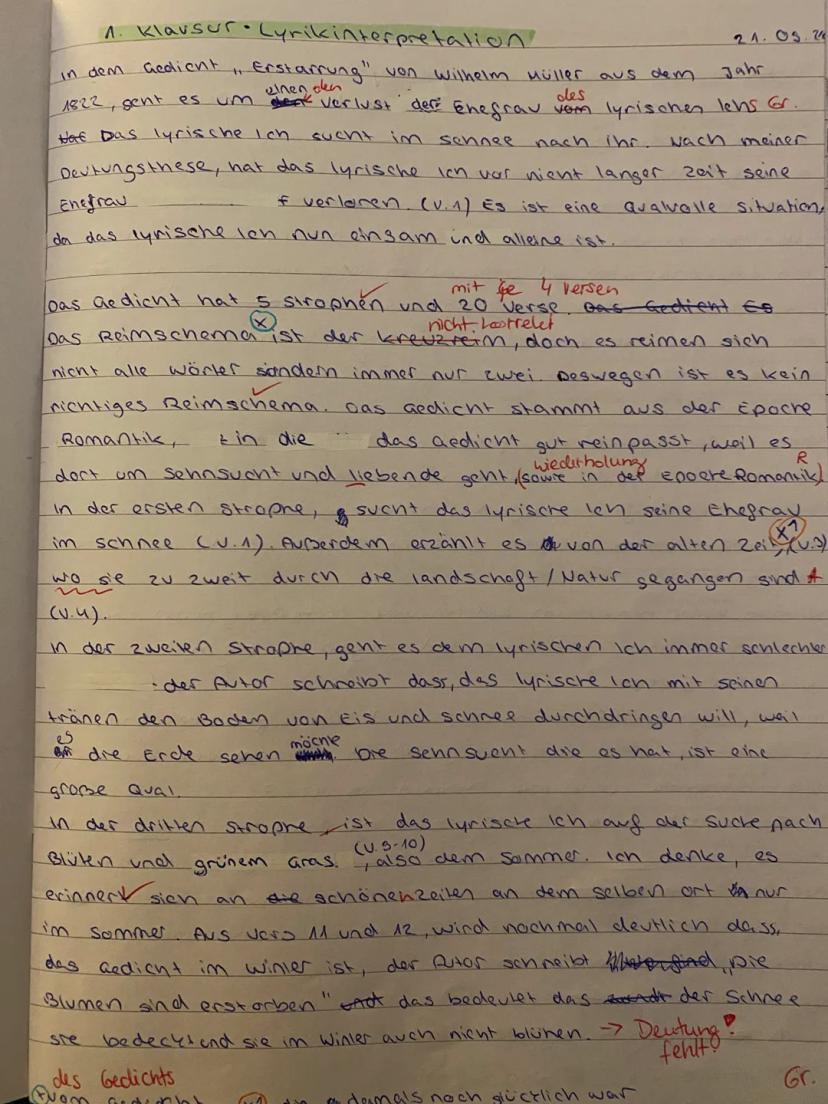 1. Klausur • Lyrikinterpretation 21.09.
In dem Gedicht „Erstarrung" von Wilhelm Müller aus dem Jahr
einen den des
1822, geht es um Verlust der Ehefrau vom lyrischen Ichs Gr.
Das lyrische Ich sucht im schnee nach ihr. Nach meiner
Deutungsthese, hat das lyrische Ich vor nicht langer Zeit seine
Ehefrau verloren. (V.1) Es ist eine Qualvolle situation,
da das lyrische Ich nun einsam und alleine ist.
mit je 4 Versen
Das Gedicht hat 5 Strophen und 20 Verse. Das Gedicht Es
nicht korrekt
Das Reimschema (x) ist der Kreuzreim, doch es reimen sich
nicht alle Wörter sondern immer nur zwei. Deswegen ist es kein
richtiges Reimschema. Das Gedicht stammt aus der Epoche
Romantik, in die das Gedicht gut reinpasst, weil es
Wiederholung R
dort um Sehnsucht und liebende geht, (sowie in der Epoche Romantik)
In der ersten Strophe, sucht das lyrische Ich seine Ehefrau
x1
im schnee (V.1). Außerdem erzählt es von der alten Zeit, (V.3)
wo sie zu zweit durch die Landschaft / Natur gegangen sind A
(V.4).
In der zweiten Strophe, geht es dem lyrischen Ich immer schlechter
der Autor schreibt dass, das lyrische Ich mit seinen
tränen den Boden von Eis und schnee durchdringen will, weil
es möchte
die Erde sehen. Die Sehnsucht die es hat, ist eine
große Qual.
In der dritten Strophe ist das lyrische Ich auf der Suche nach
(V.9-10)
Blüten und grünem Gras, also dem Sommer. Ich denke, es
erinnert sich an die schönen Zeiten an dem selben ort nur
im Sommer. Aus Vers 11 und 12, wird nochmal deutlich dass,
das Gedicht im Winter ist, der Autor schreibt „Die
Blumen sind erstorben" und das bedeutet das der Schnee
sie bedeckt und sie im Winter auch nicht blühen. → Deutung fehlt!
des Gedichts Gr.
vom Gedicht damals noch glücklich war